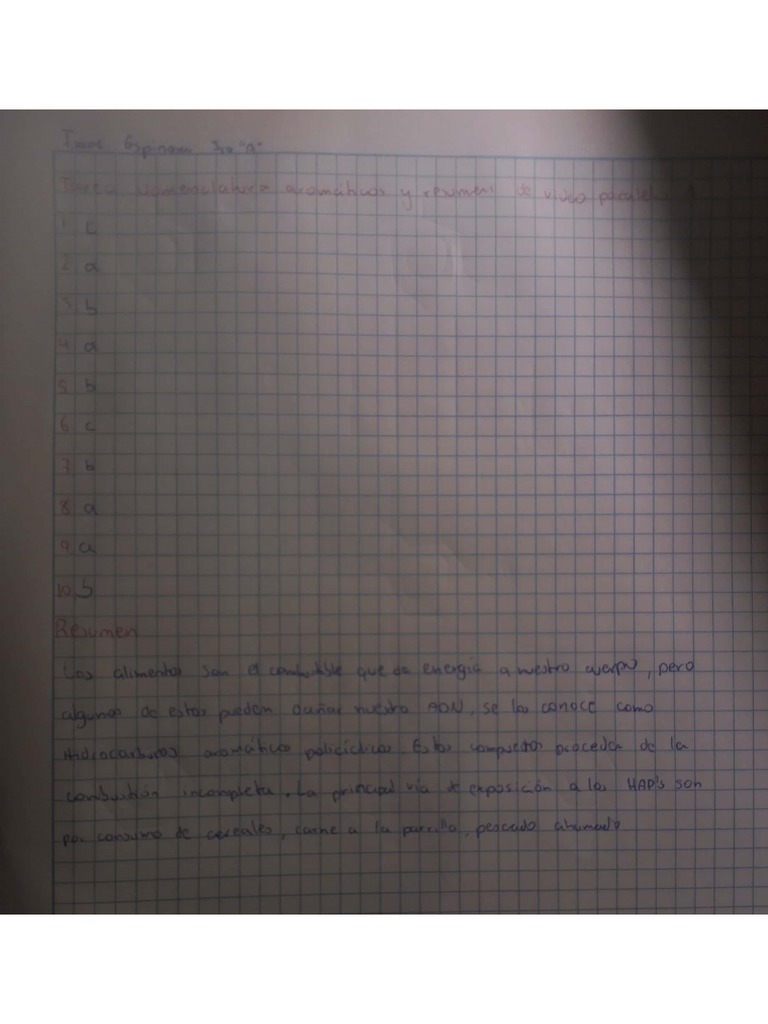 3ro "A"
Tarea Nomenclatura aromáticos y resumen de video
1 c
2 a
3 b
4 a
5 b
6 c
7 b
8 a
9 a
10 b
Resumen
Los alimentos son el combustible que da energía a nuestro cuerpo, pero
algunos de estos pueden dañar nuestro ADN, se los conoce como
Hidrocarburos aromáticos policíclicos. Estos compuestos proceden de la
combustión incompleta. La principal vía de exposición a los HAP's son
por consumo de cereales, carne a la parrilla, pescado ahumado